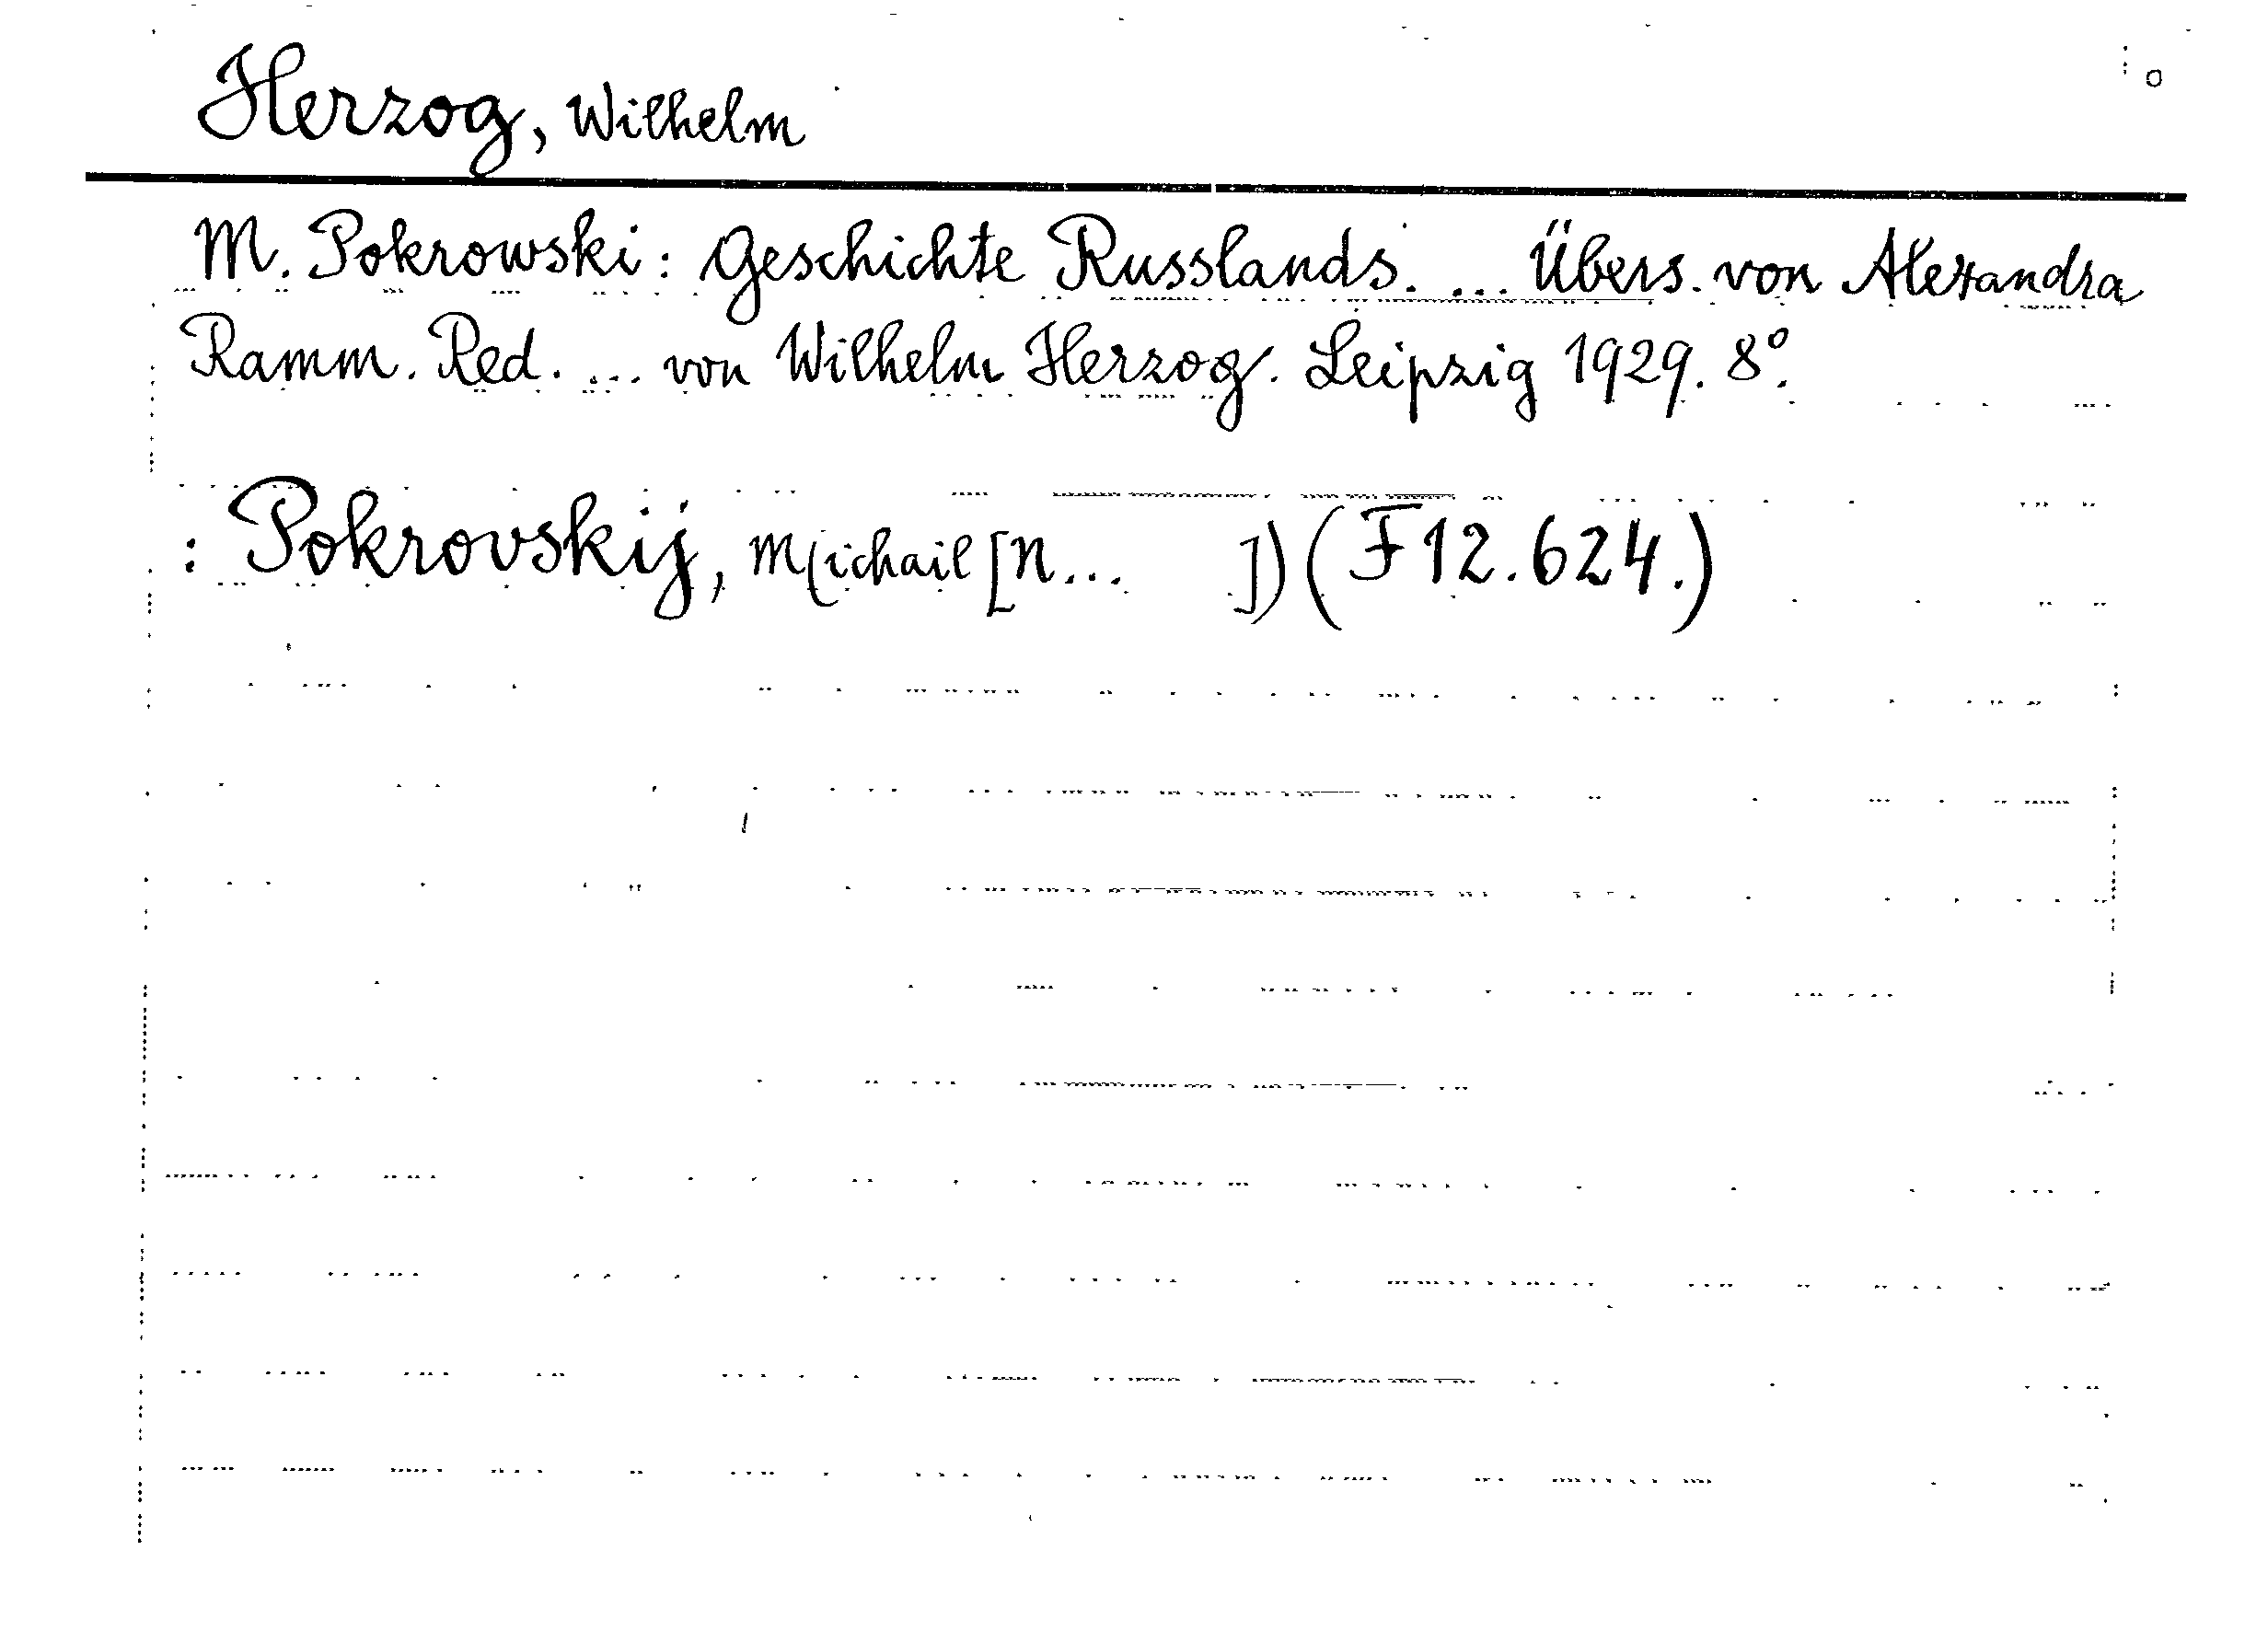 Herzog, Wilhelm
M. Pokrowski: Geschichte Russlands. ... Übers. von Alexandra
Ramm. Red. ... von Wilhelm Herzog. Leipzig 1929. 8°.
: Pokrovskij, M(ichail [N... ]) (F 12.624.)